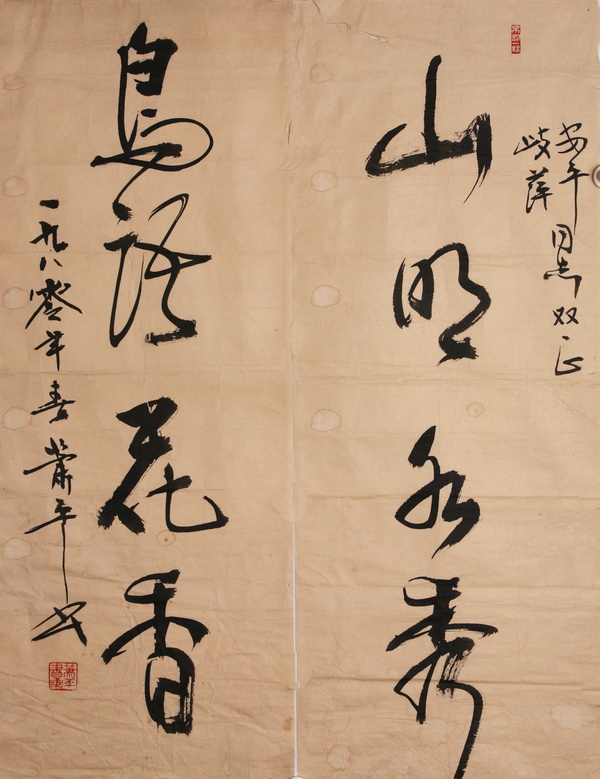 安午
歧萍
同志双正
山明水秀
鸟语花香
一九八零年春萧平书